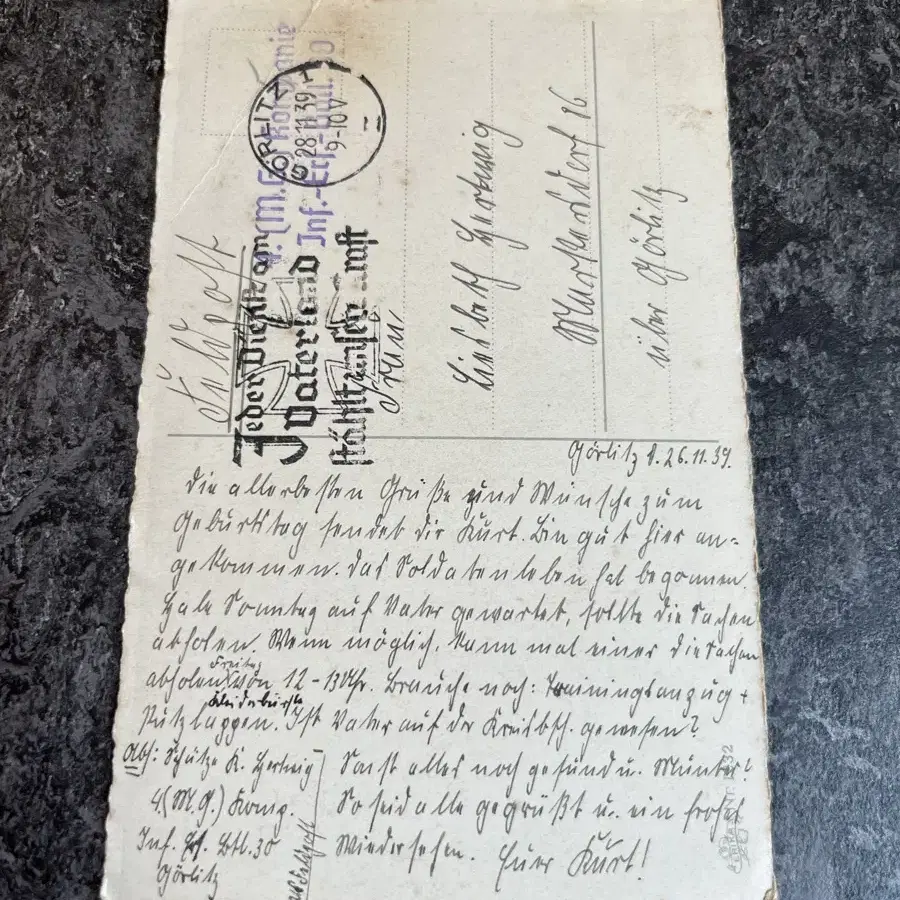 Feldpost
GÖRLITZ
28.11.39
9-10 V
4. (M.G.) Kompanie
Inf.-Ers.-Batl. 30
Jeder Dienst am
Vaterland
stählt unsere Kraft
Frau
Liesbeth Hertwig
Markersdorf 16
über Görlitz
Görlitz d. 26.11.39.
Die allerbesten Grüße und Wünsche zum
Geburtstag sendet dir Kurt. Bin gut hier an=
gekommen. Das Soldatenleben hat begonnen
Habe Sonntag auf Vater gewartet, sollte die Sachen
abholen. Wenn möglich, kann mal einer die Sachen
Freitag
abholen von 12 - 13 Uhr. Brauche noch: Trainingsanzug +
Kleiderbürste
Putzlappen. Ist Vater auf der Kreisbsch. gewesen?
Abs: Schütze K. Hertwig
4. (M.G.) Komp.
Inf. Ers. Btl. 30
Görlitz
Sonst alles noch gesund u. Munter!
So seid alle gegrüßt u. ein frohes
Wiedersehen. Euer Kurt!